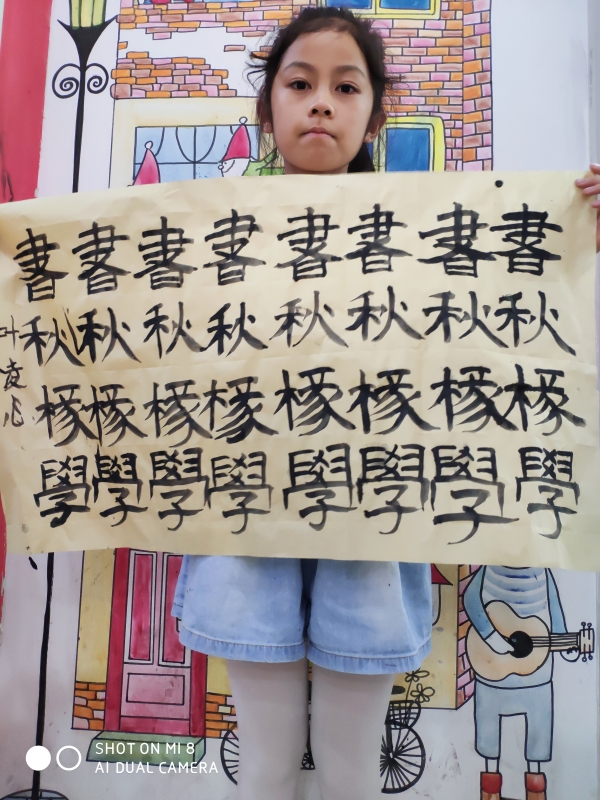 書書書書書書書書
秋秋秋秋秋秋秋秋
椽椽椽椽椽椽椽椽
學學學學學學學學
叶凌
SHOT ON MI 8
AI DUAL CAMERA